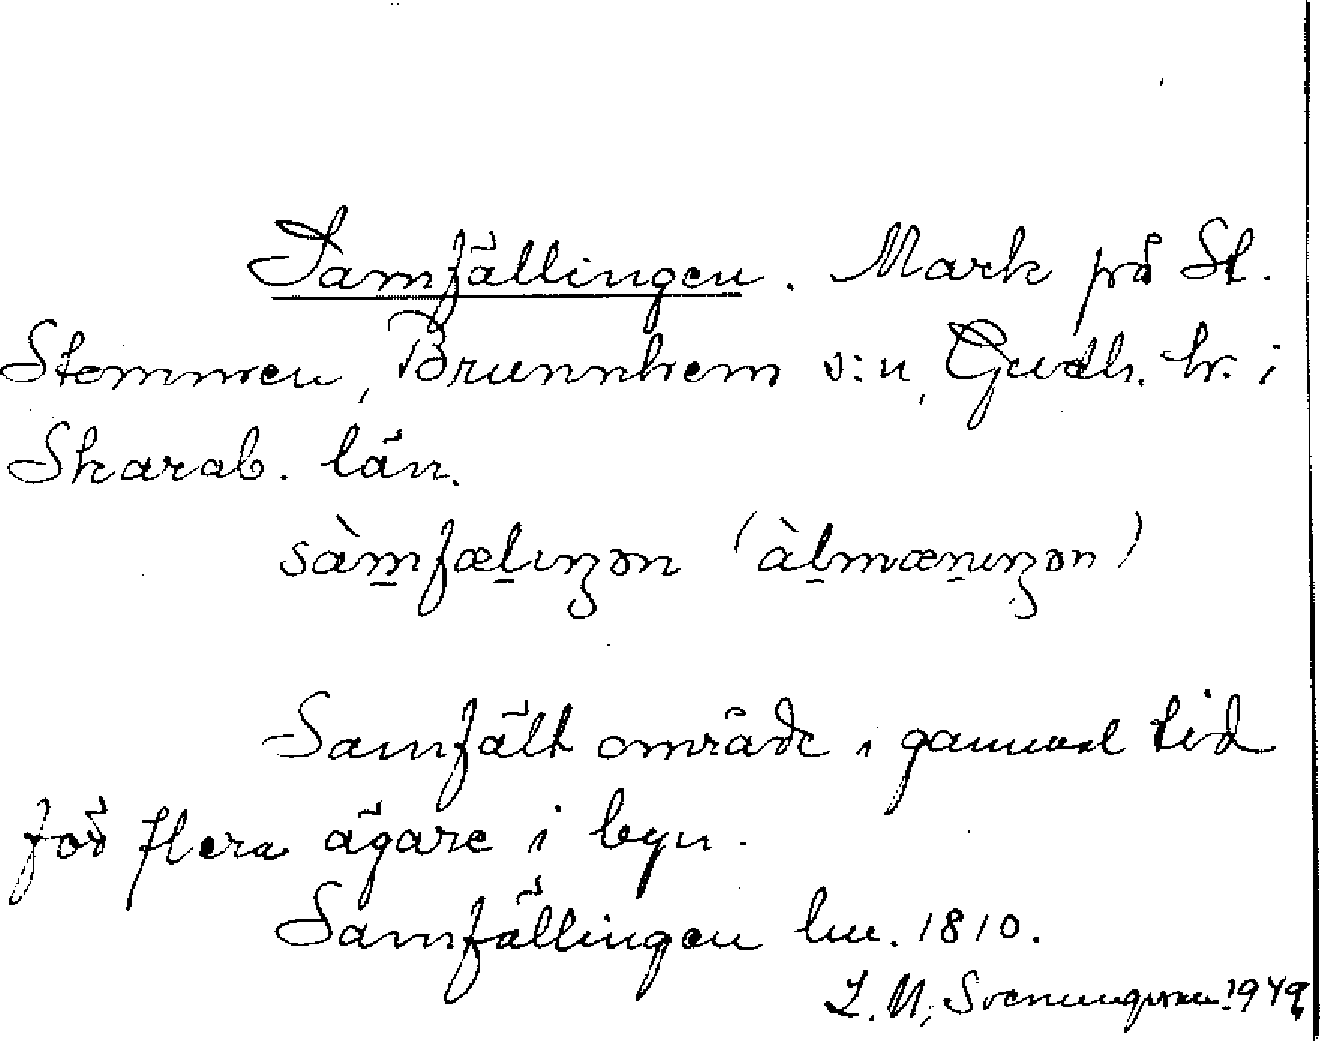 Samfällingen. Mark på St.
Stommen, Brunnhem s:n, Gudh. hr. i
Skarab. län.
sàm̲fæl̲ıŋən (àl̲mæn̲ıŋən)
Samfält område i gammal tid
för flera ägare i byn.
Samfällingen lm. 1810.
L. M. Svenungsson 1949